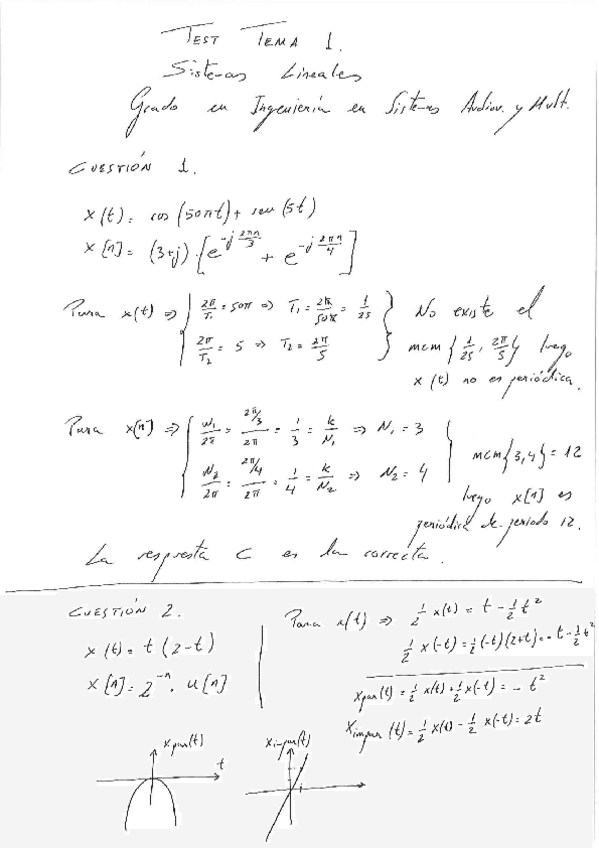 TEST TEMA 1.
Sistemas Lineales
Grado en Ingeniería en Sistemas Audiov. y Mult.
CUESTIÓN 1.
x(t) = cos(50πt) + sen(5t)
x[n] = (3+j)·[e^{-j 2πn/3} + e^{-j 2πn/4}]
Para x(t) ⇒ { 2π/T₁ = 50π ⇒ T₁ = 2π/50π = 1/25
2π/T₂ = 5 ⇒ T₂ = 2π/5 }
No existe el
mcm {1/25, 2π/5} luego
x(t) no es periódica.
Para x[n] ⇒ { ω₁/2π = (2π/3)/2π = 1/3 = k/N₁ ⇒ N₁ = 3
N₂/2π = (2π/4)/2π = 1/4 = k/N₂ ⇒ N₂ = 4 }
mcm{3,4} = 12
luego x[n] es
periódica de periodo 12.
La respuesta C es la correcta.
CUESTIÓN 2.
x(t) = t(2-t)
x[n] = 2^{-n}. u[n]
Para x(t) ⇒ 1/2 x(t) = t - 1/2 t²
1/2 x(-t) = 1/2(-t)(2+t) = -t - 1/2 t²
xpar(t) = 1/2 x(t) + 1/2 x(-t) = - t²
ximpar(t) = 1/2 x(t) - 1/2 x(-t) = 2t
xpar(t)
t
ximpar(t)
1